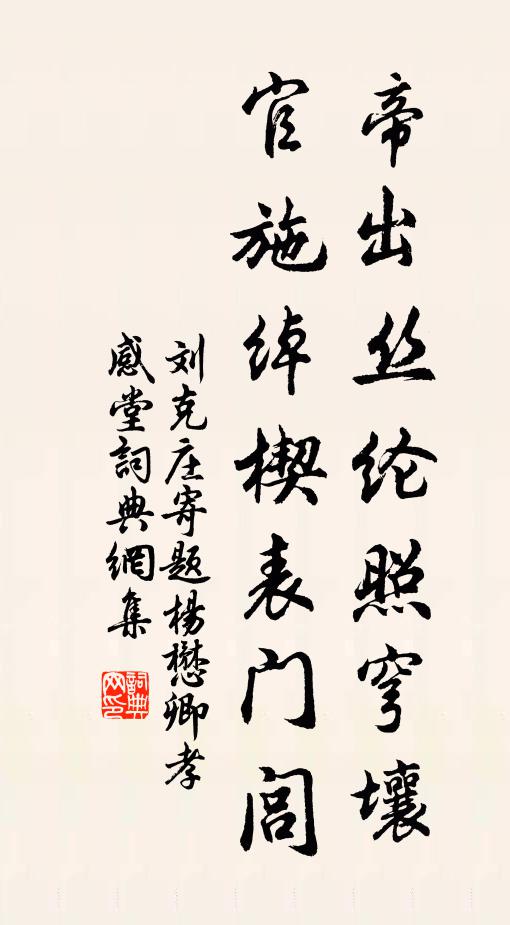 帝出丝纶照穹壤
官施绰楔表门闾
刘克庄寄题杨懋卿孝
感堂词典網集
詞典
网印